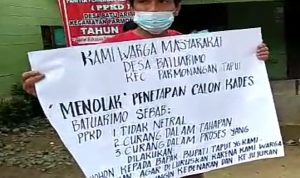 ( PPKD )
DESA BATU
KECAMATAN PARMO
TAHUN
KAMI WARGA MASYARAKAT
DESA BATUARIMO
KEC PARMONANGAN TAPUT
"MENOLAK" PENETAPAN CALON KADES
BATUARIMO SEBAB:
PPKD 1 TIDAK NETRAL
2 CURANG DALAM TAHAPAN
3 CURANG DALAM PROSES YANG
DILAKUKAN.
MOHON KEPADA BAPAK BUPATI TAPUT YG KAMI
AGAR DILURUSKAN KARENA KAMI WARGA
KEBENARAN DAN KEJUJURAN